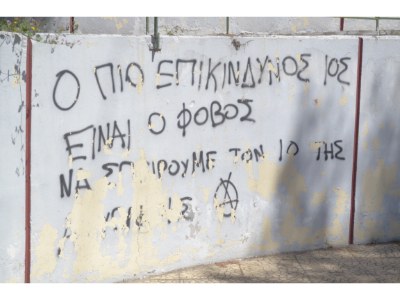 Ο ΠΙΟ ΕΠΙΚΙΝΔΥΝΟΣ ΙΟΣ
ΕΙΝΑΙ Ο ΦΟΒΟΣ
ΝΑ ΣΠΕΙΡΟΥΜΕ ΤΟΝ ΙΟ ΤΗΣ